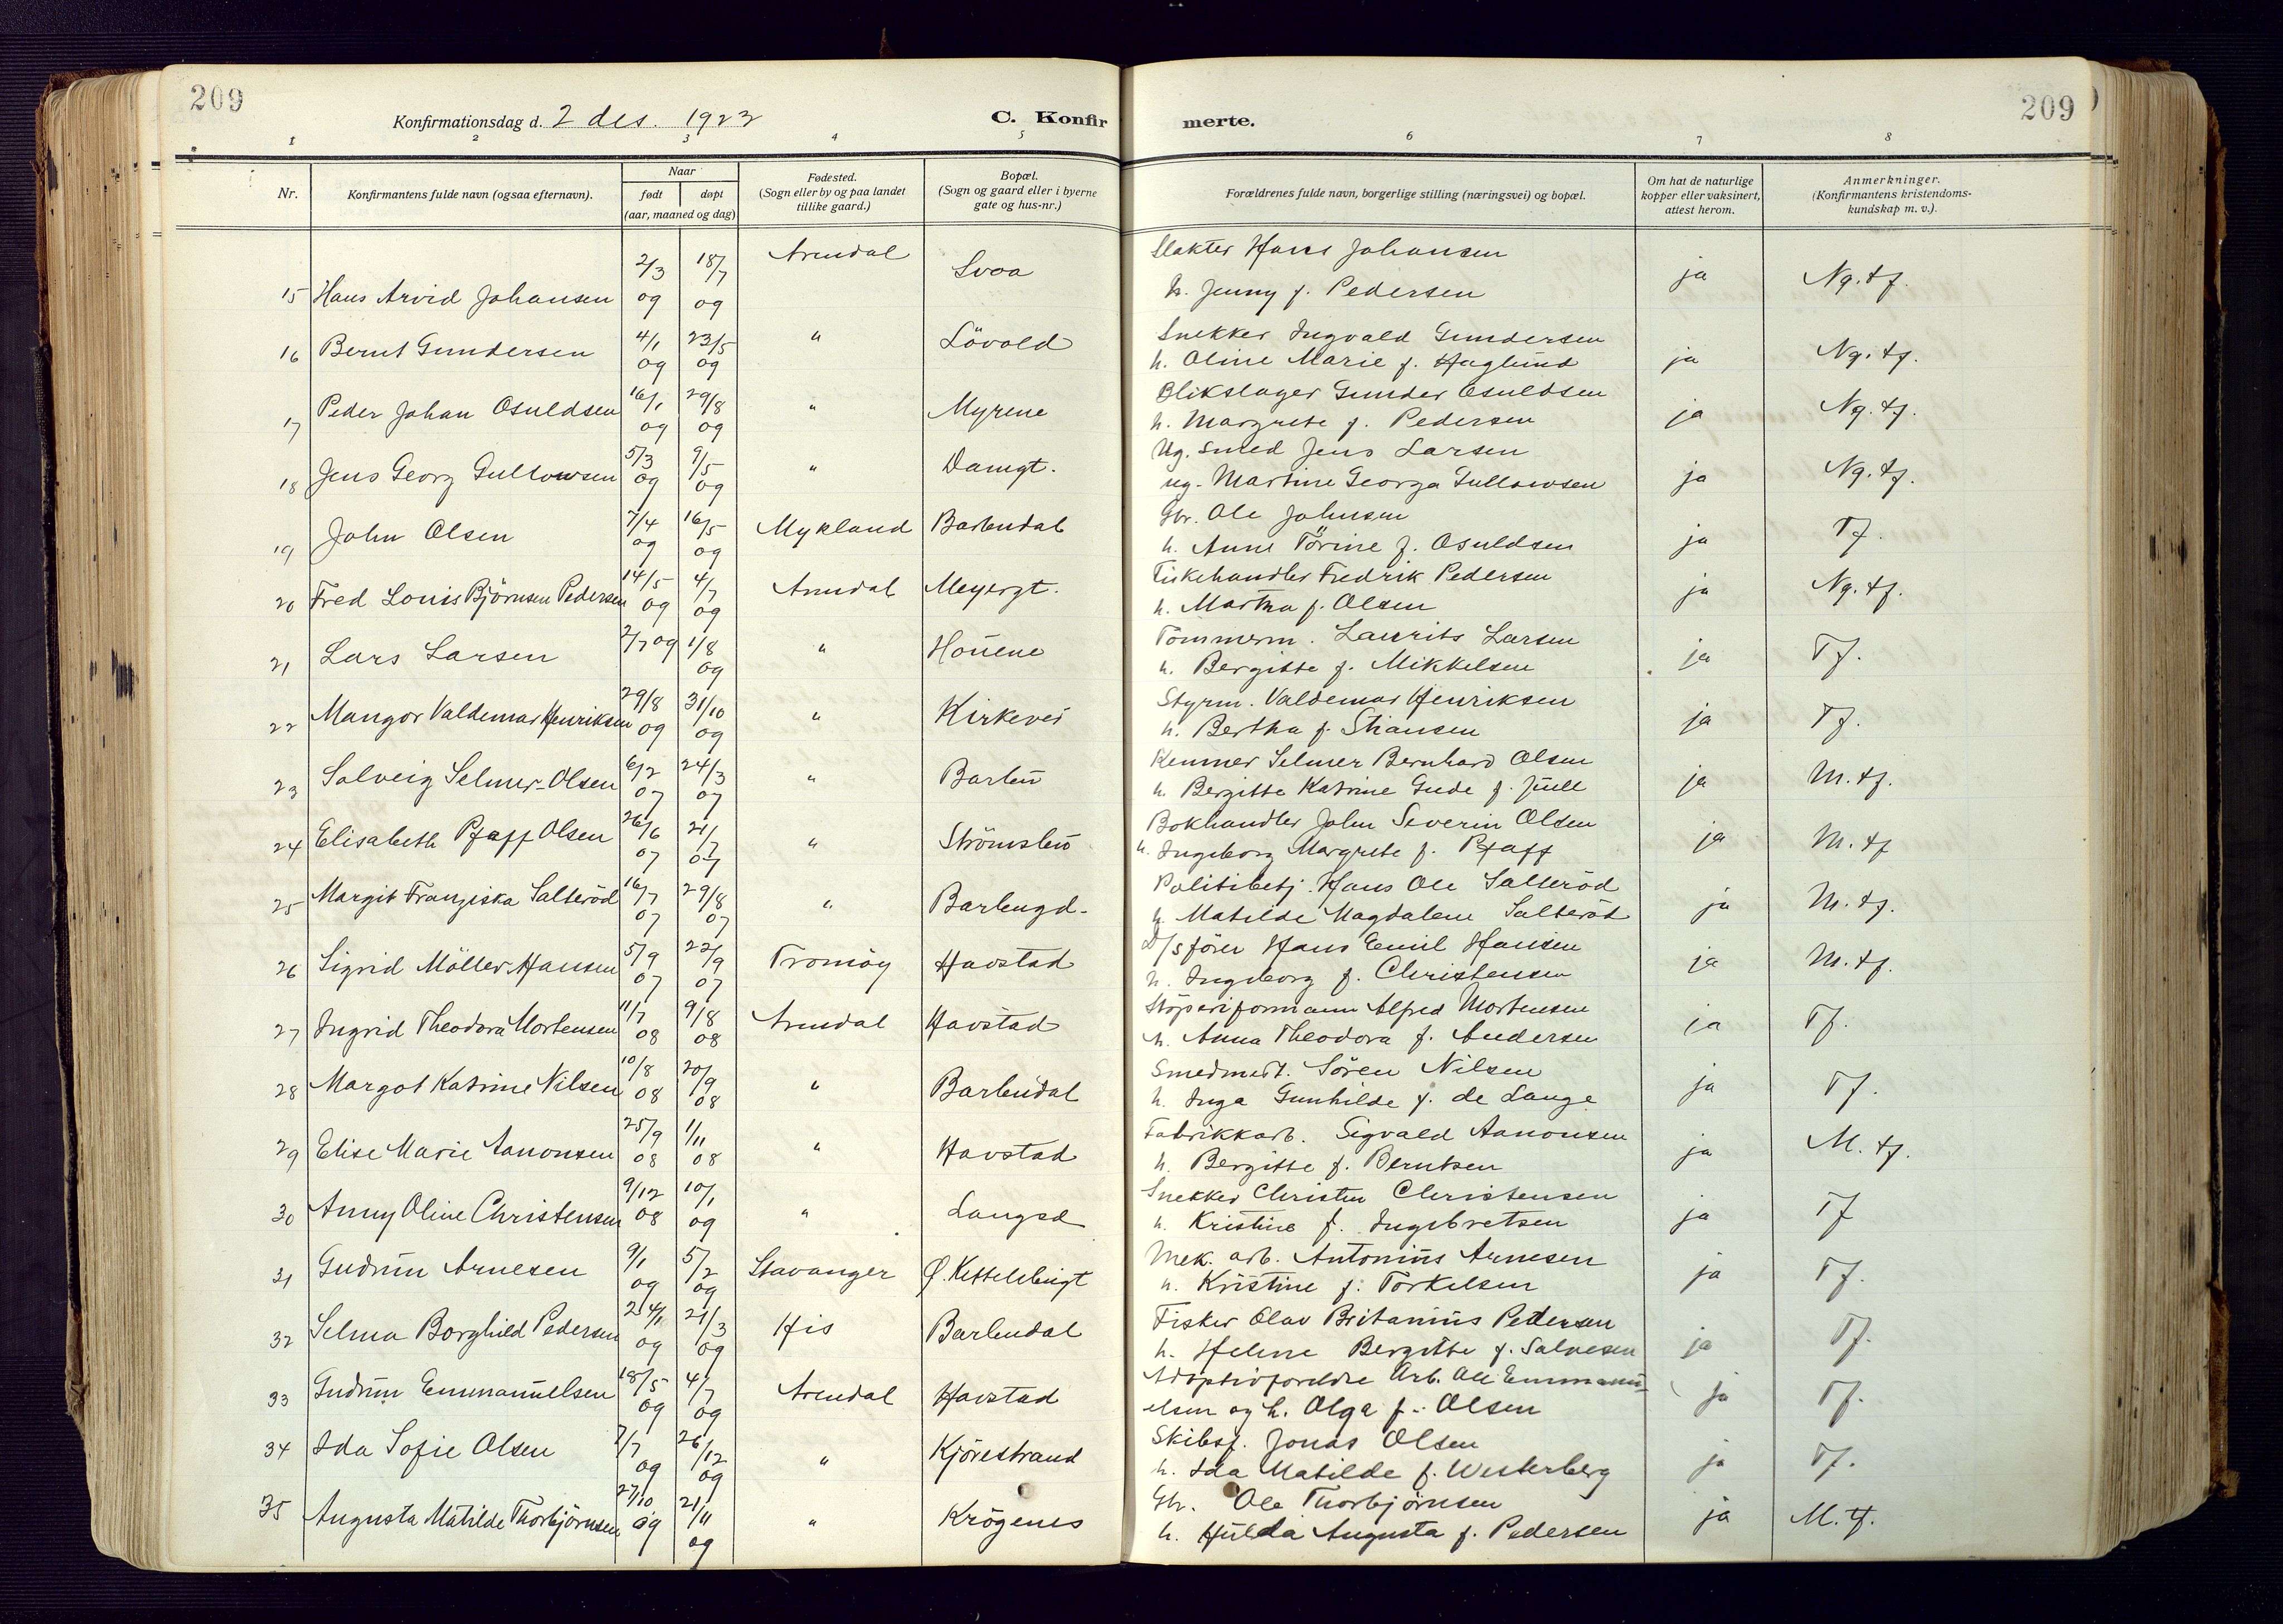 209
209
Konfirmationsdag d. 2 des. 1923
C. Konfirmerte.
1 2 3 4 5 6 7 8
Nr.
Konfirmantens fulde navn (ogsaa efternavn).
Naar
født døpt
(aar, maaned og dag)
Fødested.
(Sogn eller by og paa landet
tillike gaard.)
Bopæl.
(Sogn og gaard eller i byerne
gate og hus-nr.)
Forældrenes fulde navn, borgerlige stilling (næringsvei) og bopæl.
Om hat de naturlige
kopper eller vaksinert,
attest herom.
Anmerkninger.
(Konfirmantens kristendoms-
kundskap m. v.).
15 Hans Arvid Johansen 2/3 09 18/7 09 Arendal Svoa Slakter Hans Johansen
h. Jenny f. Pedersen ja Ng. tf.
16 Bernt Gundersen 4/1 09 23/5 09 " Lövold Snekker Ingvald Gundersen
h. Oline Marie f. Haglund ja Ng. tf.
17 Peder Johan Osuldsen 16/1 09 29/8 09 " Myrene Blikslager Gunder Osuldsen
h. Margrete f. Pedersen ja Ng. tf.
18 Jens Georg Gullowsen 5/3 09 9/5 09 " Damgt. Ug. Smed Jens Larsen
ug. Martine Georga Gullowsen ja Ng. tf.
19 John Olsen 7/4 09 16/5 09 Mykland Barbudal Gbr. Ole Johnsen
h. Anne Törine f. Osuldsen ja Tf.
20 Fred Louis Björnsen Pedersen 14/5 09 4/7 09 Arendal Meyergt. Fiskehandler Fredrik Pedersen
h. Martha f. Olsen ja Ng. tf.
21 Lars Larsen 2/7 09 1/8 09 " Houene Tömmerm. Laurits Larsen
h. Bergitte f. Mikkelsen ja Tf.
22 Mangor Valdemar Henriksen 29/8 09 31/10 09 " Kirkevei Styrm. Valdemar Henriksen
h. Bertha f. Stiansen ja Tf.
23 Solveig Selmer-Olsen 6/2 07 24/3 07 " Barbu Kemner Selmer Bernhard Olsen
h. Bergitte Katrine Gude f. Juell ja M. tf.
24 Elisabeth Pfaff Olsen 26/6 07 21/7 07 " Strömsbu Bokhandler John Severin Olsen
h. Ingeborg Margrete f. Pfaff ja M. tf
25 Margit Franziska Salteröd 16/7 07 29/8 07 " Barbugd. Politibetj. Hans Ole Salteröd
h. Matilde Magdalene Salteröd ja M. tf.
26 Sigrid Möller Hansen 5/9 07 22/9 07 Tromöy Havstad D/S förer Hans Emil Hansen
h. Ingeborg f. Christensen ja M. tf.
27 Ingrid Theodora Mortensen 11/7 08 9/8 08 Arendal Havstad Stöperiformann Alfred Mortensen
h. Anna Theodora f. Andersen ja Tf.
28 Margot Katrine Nilsen 10/8 08 20/9 08 " Barbudal Smedmest. Sören Nilsen
h. Inga Gunhilde f. de Lange ja Tf.
29 Elise Marie Aanonsen 25/9 08 1/11 08 " Havstad Fabrikkarb. Sigvald Aanonsen
h. Bergitte f. Berntsen ja M. tf.
30 Anny Oline Christensen 9/12 08 10/1 09 " Langsd Snekker Christen Christensen
h. Kristine f. Ingebretsen ja Tf
31 Gudrun Arnesen 9/1 09 5/2 09 Stavanger Ø. Kittelsbugt Mek. arb. Antonius Arnesen
h. Kristine f. Torkelsen ja Tf.
32 Selma Borghild Pedersen 24/1 09 21/3 09 His Barbudal Fisker Olav Britanius Pedersen
h. Helene Bergitte f. Salvesen ja Tf.
33 Gudrun Emmanuelsen 18/5 09 4/7 09 Arendal Havstad Adoptivforeldre Arb. Ole Emmanu-
elsen og h. Olga f. Olsen ja Tf.
34 Ida Sofie Olsen 7/7 09 26/12 09 " Kjörestrand Skibsf. Jonas Olsen
h. Ida Matilde f. Westerberg ja Tf.
35 Augusta Matilde Thorbjörnsen 27/10 09 21/11 09 " Krögenes Gbr. Ole Thorbjørnsen
h. Hulda Augusta f. Pedersen ja M. tf.